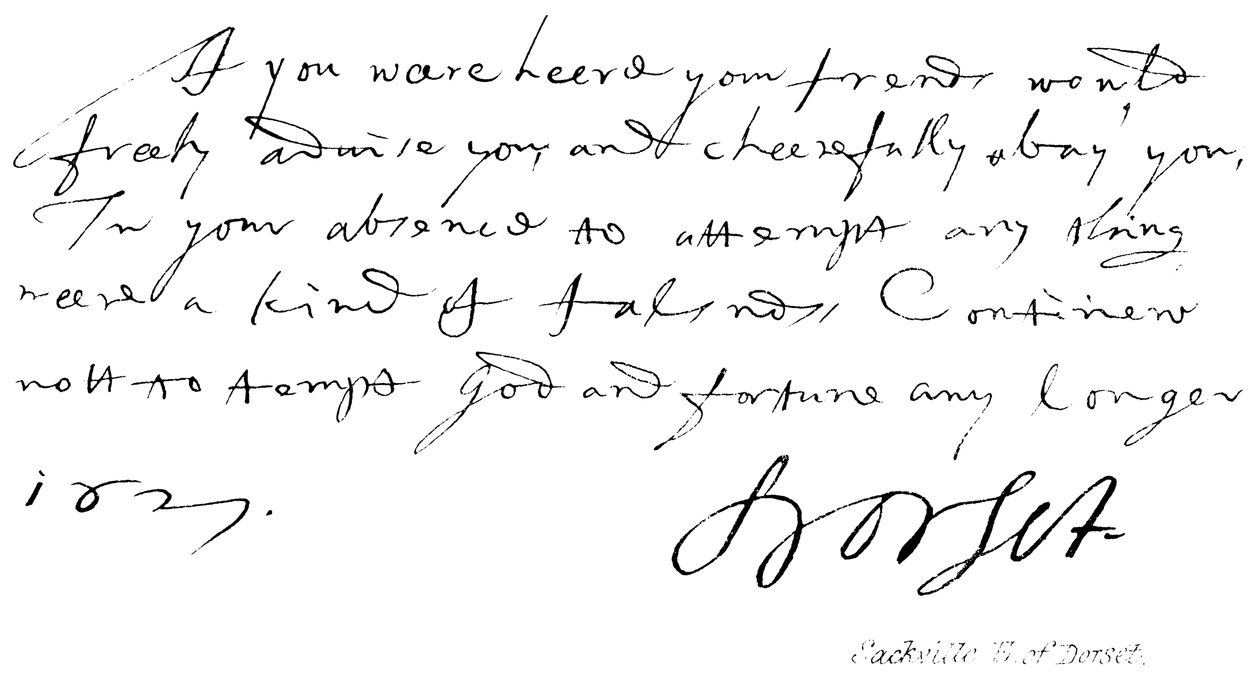 If you ware heere your frends would
freely advise you, and cheerefully obay you,
In your absence to attempt any thing
weere a kind of falsnds, Continew
nott to tempt god and fortune any longer
Dorset.
Sackville E. of Dorset.